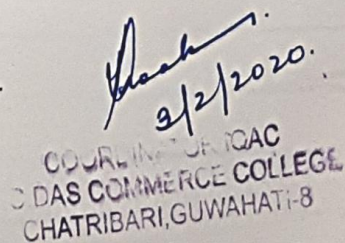 3/2/2020.
COORDINATOR IQAC
DAS COMMERCE COLLEGE
CHATRIBARI, GUWAHATI-8